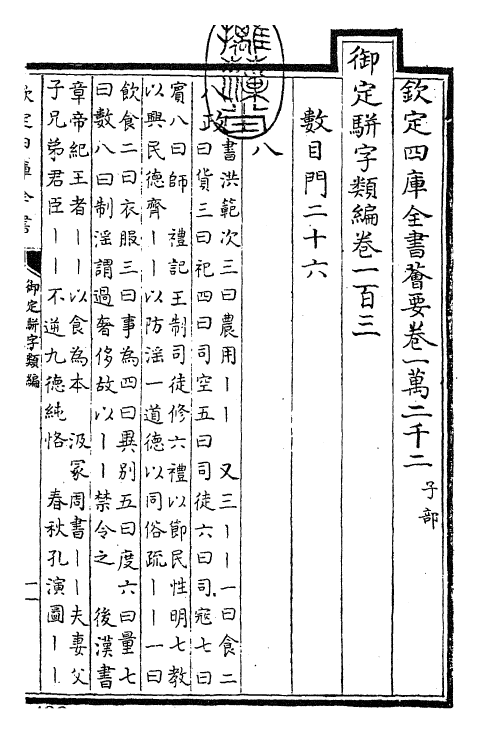 欽定四庫全書薈要卷一萬二千二 子部
御定駢字類編卷一百三
數目門二十六
八
八政 書洪範次三曰農用丨丨 又三丨丨一曰食二
曰貨三曰祀四曰司空五曰司徒六曰司寇七曰
賓八曰師 禮記王制司徒修六禮以節民性明七教
以興民德齊丨丨以防淫一道德以同俗疏丨丨一曰
飲食二曰衣服三曰事為四曰異別五曰度六曰量七
曰數八曰制淫謂過奢侈故以丨丨禁令之 後漢書
章帝紀王者丨丨以食為本 汲冢周書丨丨夫妻父
子兄弟君臣丨丨不逆九德純恪 春秋孔演圖丨丨
欽定四庫全書
御定駢字類編
一